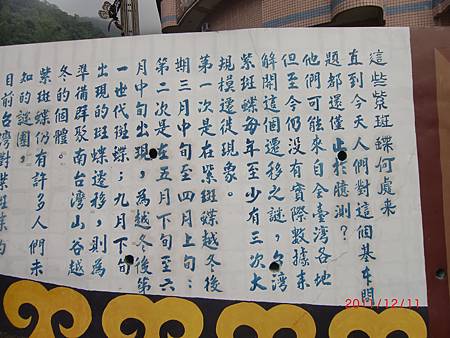 這些紫斑蝶何處來
直到今天人們對這個基本問
題都還僅止於臆測？
他們可能來自全臺灣各地
但至今仍沒有實際數據來
解開這個遷移之謎，台灣
紫斑蝶每年至少有三次大
規模遷徙現象。
第一次是在紫斑蝶越冬後
期三月中旬至四月上旬：
第二次是在五月下旬至六
月中旬出現，為越冬後第
一世代斑蝶；九月下旬
出現的斑蝶遷移，則為
準備群聚南台灣山谷越
冬的個體。
紫斑蝶仍有許多人們未
知的謎團，
目前台灣對紫斑蝶的
2011/12/11